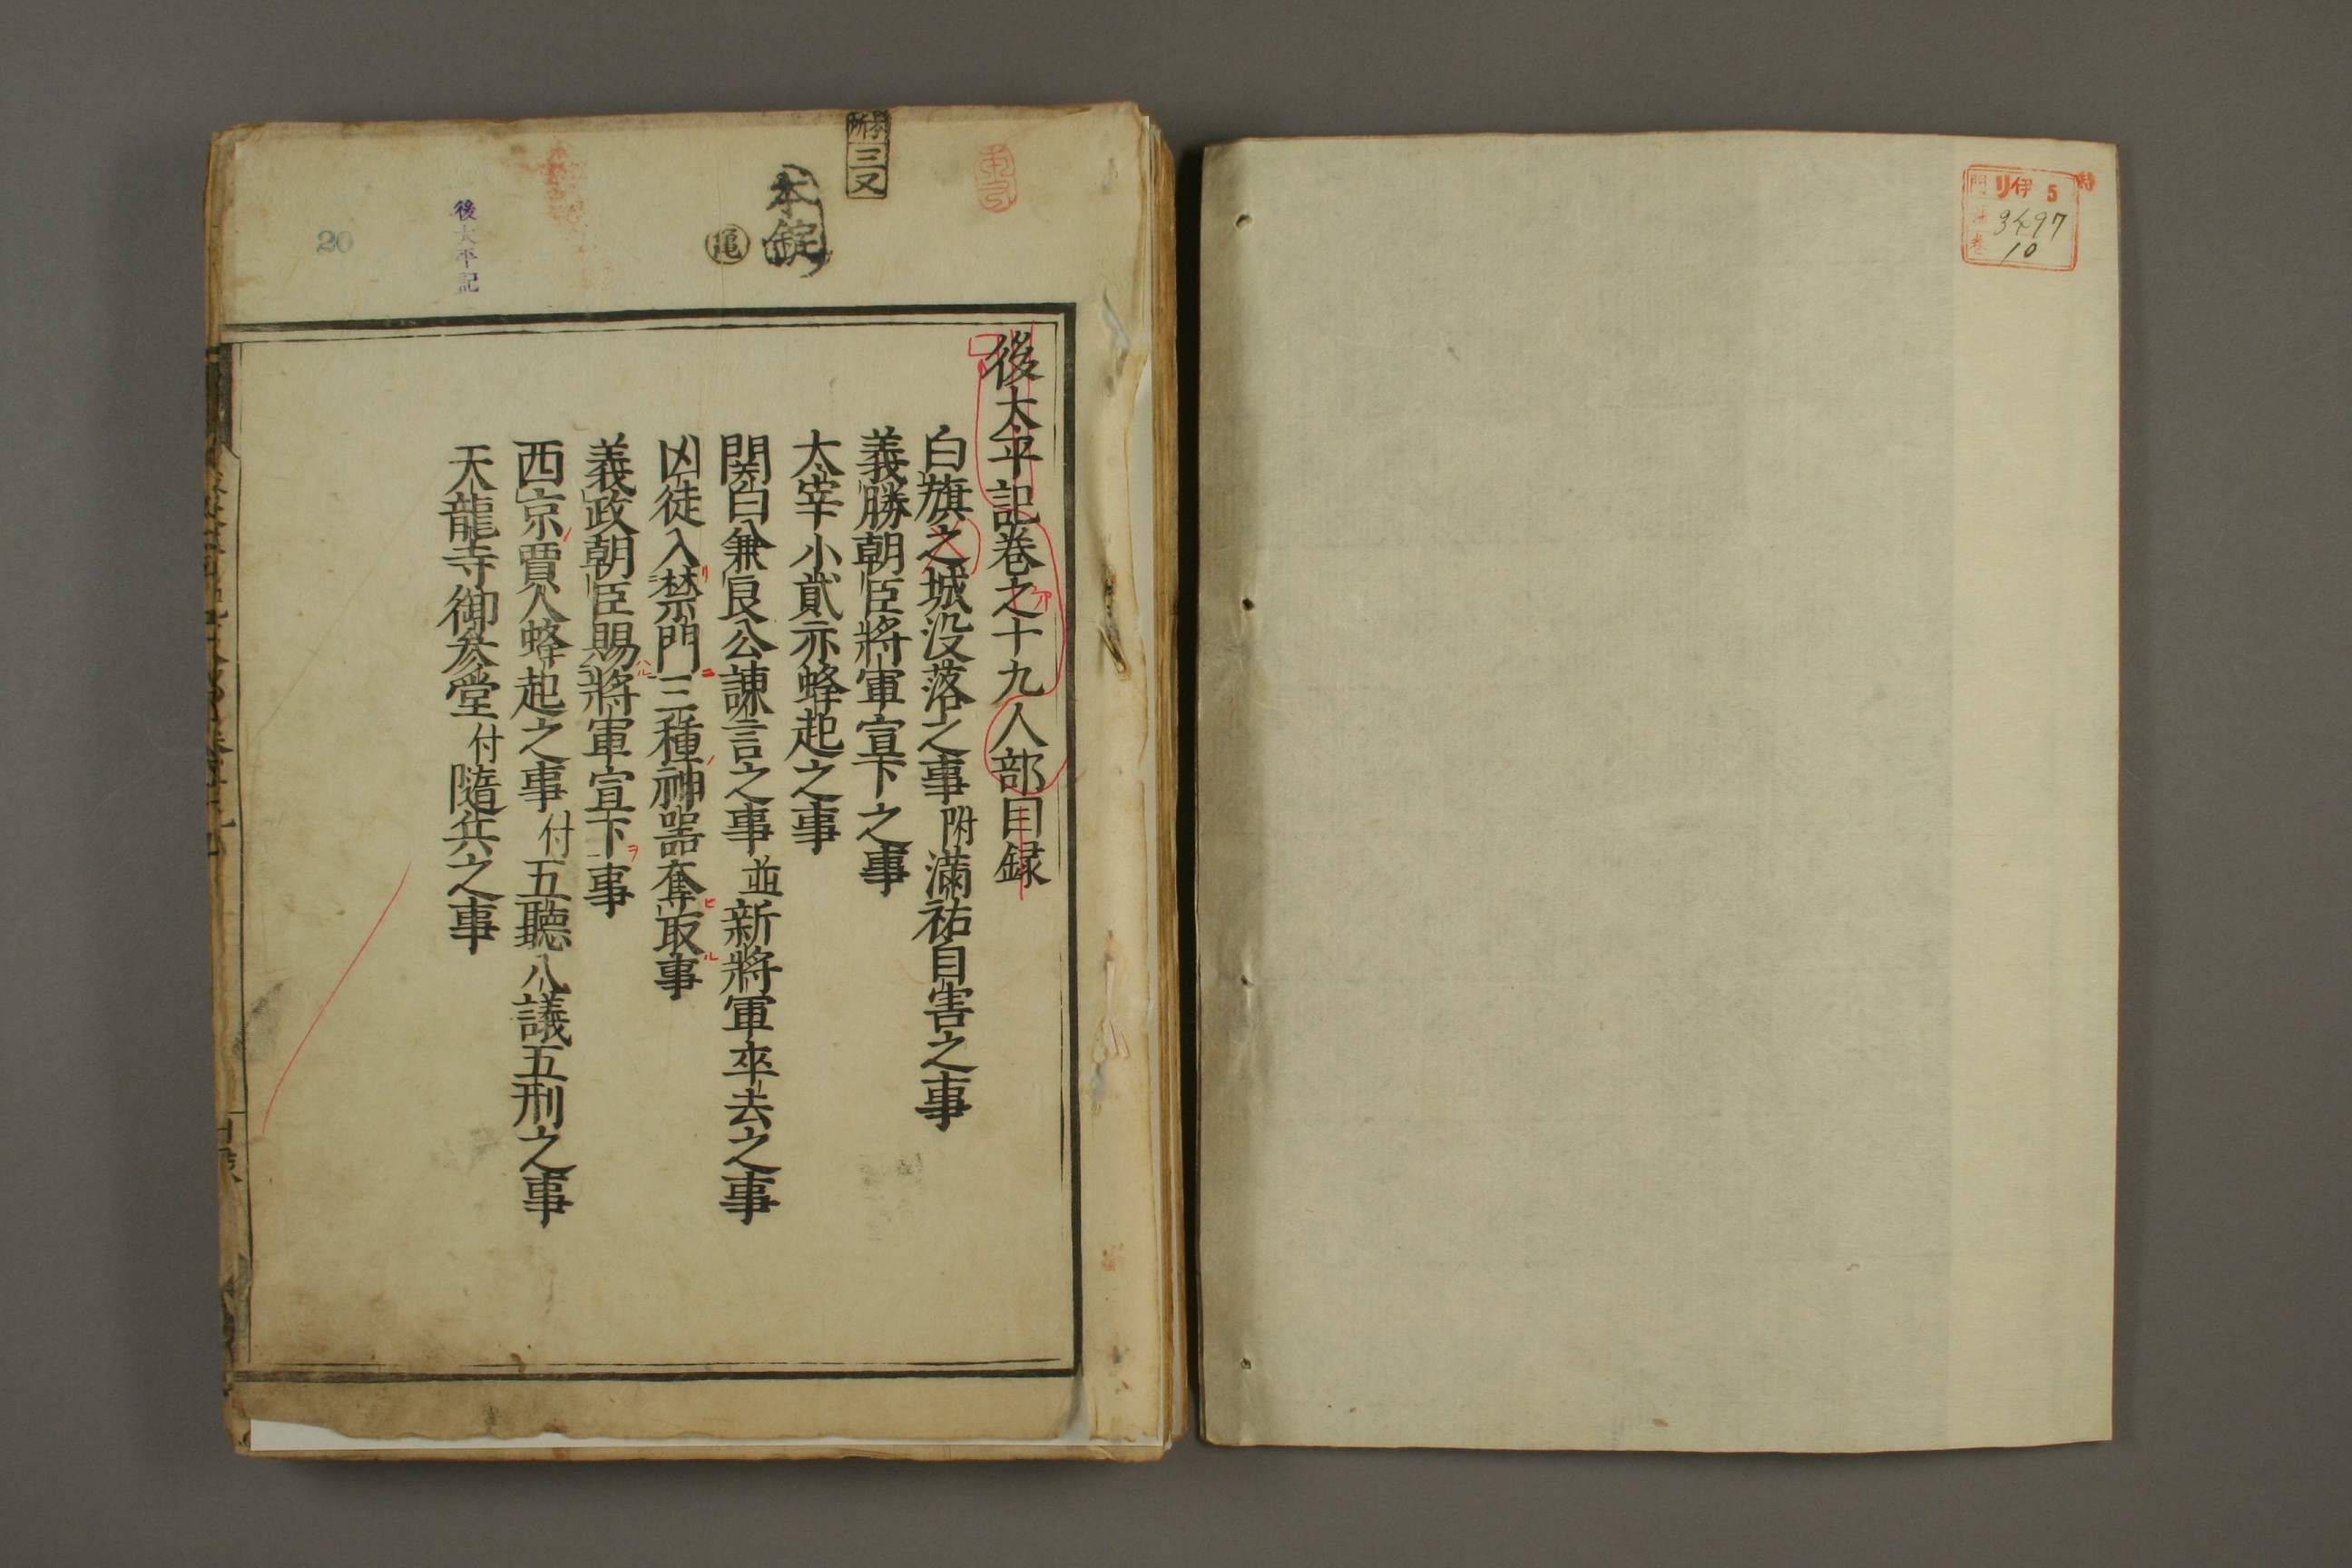 特
門 リ伊 5
號 3497
卷 10
後太平記卷之十九人部目録
白旗之城没落之事附滿祐自害之事
義勝朝臣將軍宣下之事
太宰小貳亦蜂起之事
関白兼良公諫言之事並新將軍卒去之事
凶徒入リ禁門ニ三種ノ神器奪ヒ取ル事
義政朝臣賜ハル將軍宣下ヲ事
西京ノ賈人蜂起之事付五聽八議五刑之事
天龍寺御参堂付隨兵之事
三又
本錠
亀
後太平記
20